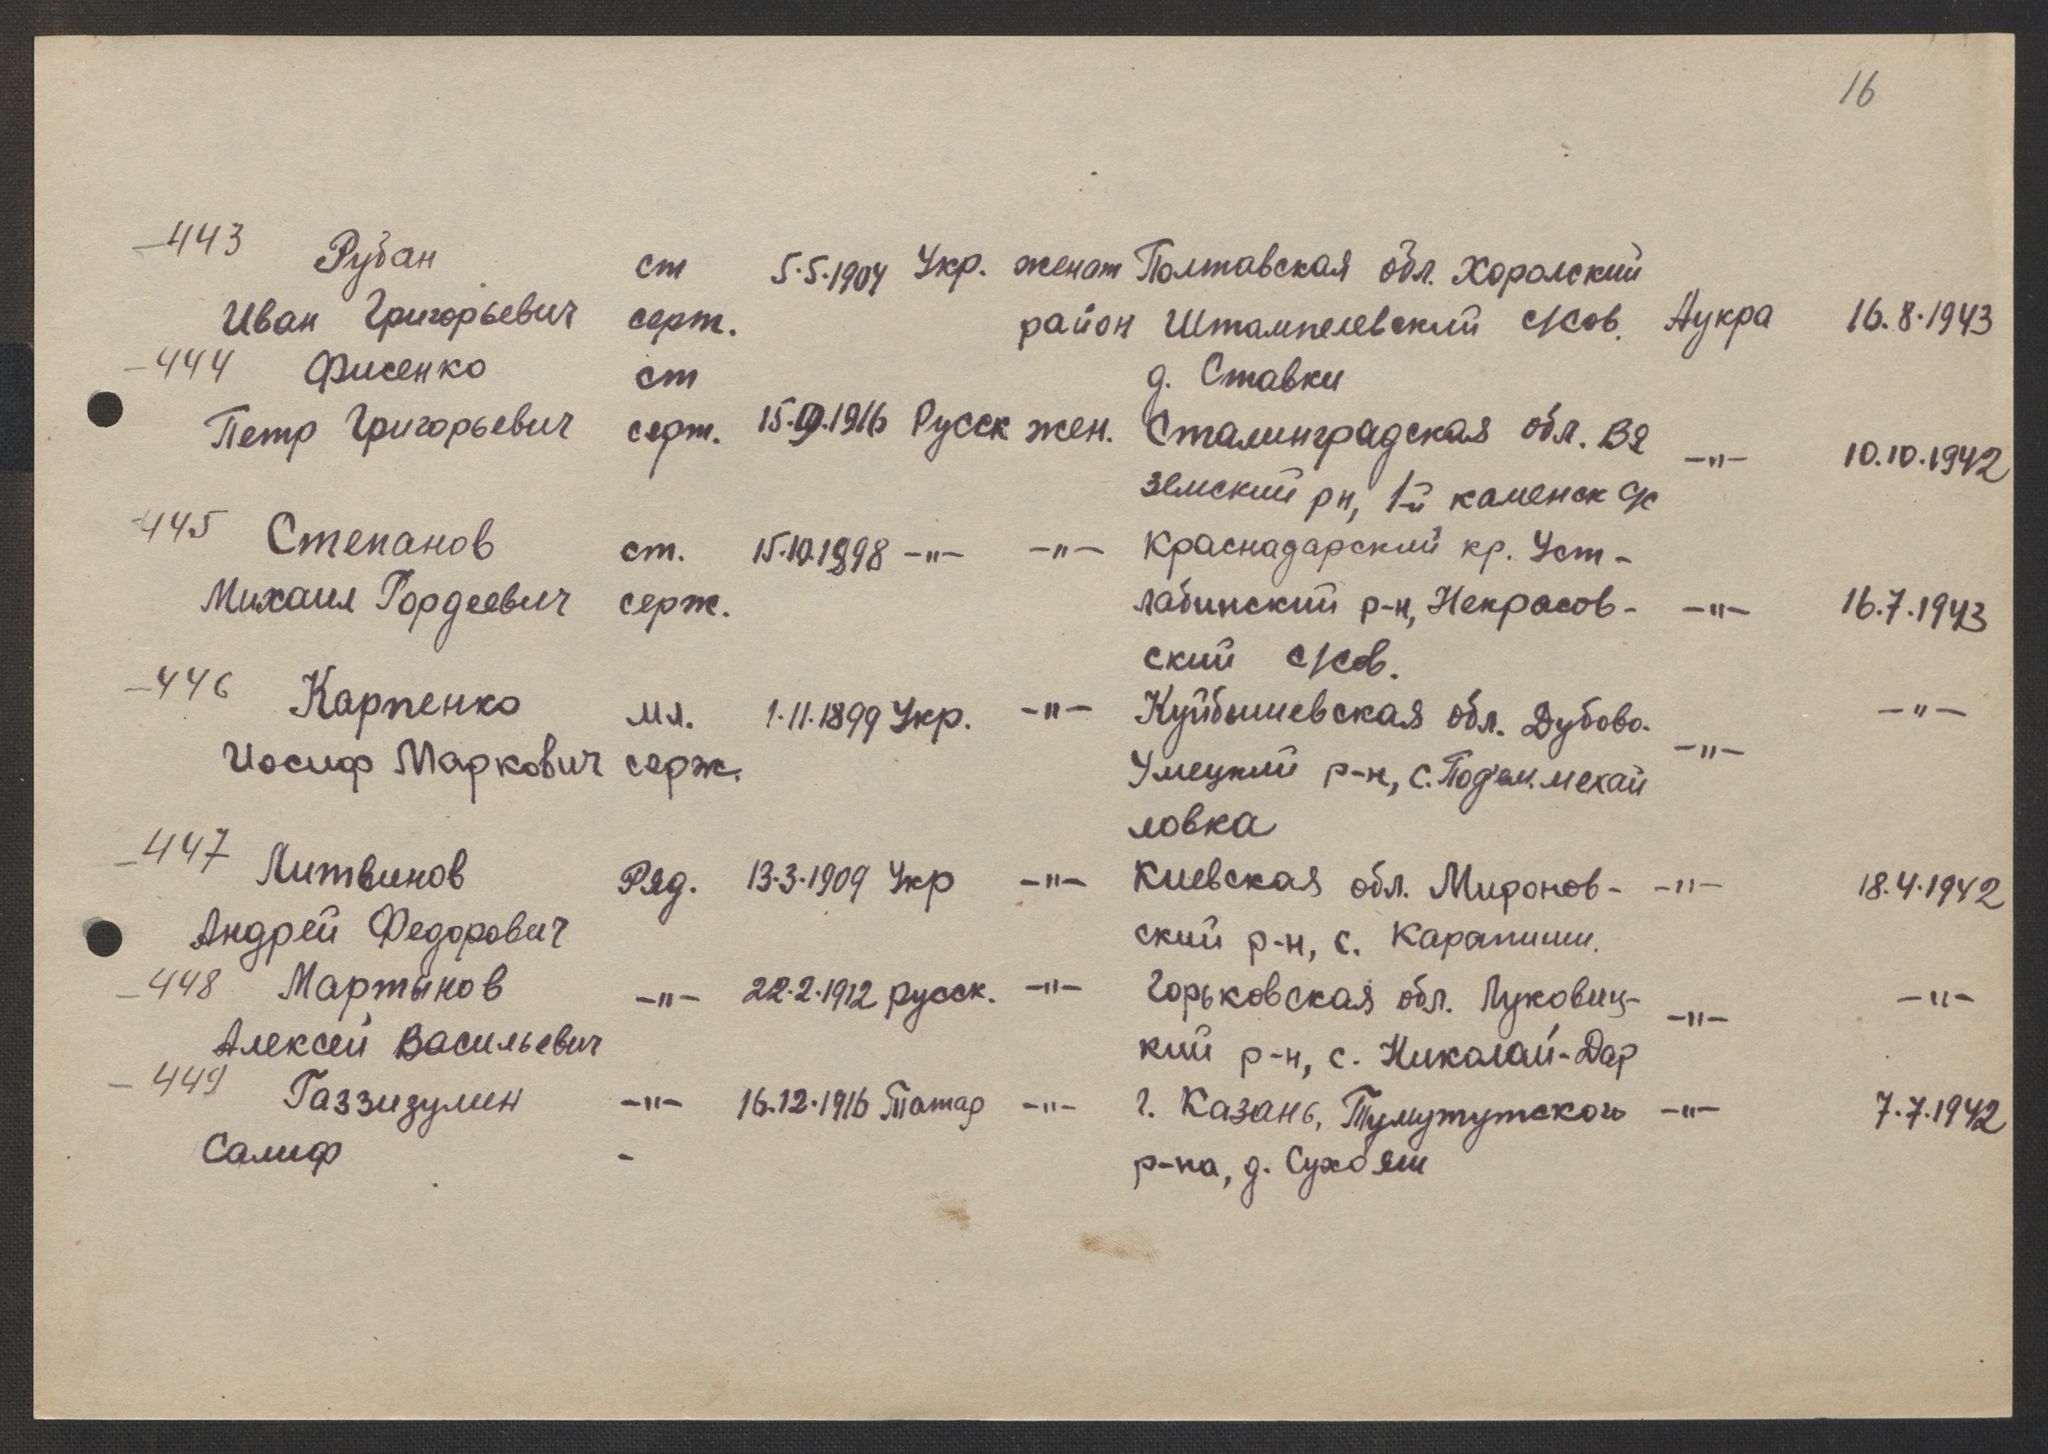 16
443 Рубан ст 5.5.1904 Укр. женат Полтавская обл. Хоролский
Иван Григорьевич серж. район Штампелевский с/сов. Аукра 16.8.1943
444 Фисенко ст д. Ставки
Петр Григорьевич серж. 1916 Русск жен. Сталинградская обл. Вя -"- 10.10.1942
земский рн, 1-й каменск с/с
445 Степанов ст. 15.10.1898 -"- -"- Краснадарский кр. Уст-
Михаил Гордеевич серж. лабинский р-н, Некрасов- -"- 16.7.1943
ский с/сов.
446 Карпенко мл. 1.11.1899 Укр. -"- Куйбышевская обл. Дубово- -"-
Иосиф Маркович серж. Умецкий р-н, с. -"-
ловка
447 Литвинов Ряд. 13.3.1909 Укр -"- Киевская обл. Миронов- -"- 18.4.1942
Андрей Федорович ский р-н, с. Карапиши.
448 Мартынов -"- 22.2.1912 русск. -"- Горьковская обл. Луковиц- -"-
Алексей Васильевич кий р-н, с. Николай-Дар -"-
449 Газзизулин -"- 16.12.1916 Татар -"- г. Казань, Тумутутского -"- 7.7.1942
Салиф - р-на, д. Сухояш